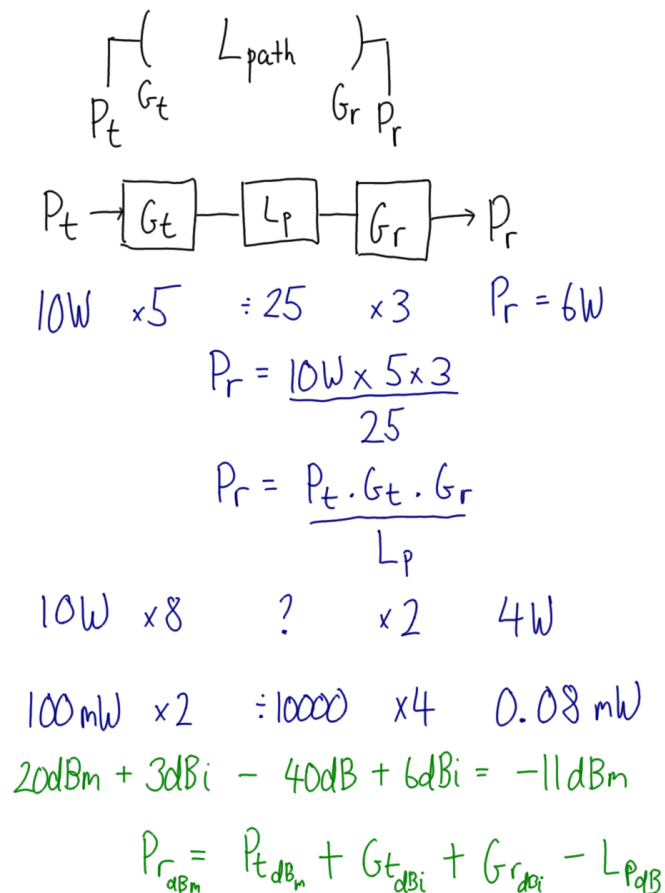 L_path
P_t G_t G_r P_r
P_t → G_t L_p G_r → P_r
10W ×5 ÷25 ×3 P_r = 6W
P_r = 10W × 5 × 3
25
P_r = P_t . G_t . G_r
L_p
10W ×8 ? ×2 4W
100mW ×2 ÷10000 ×4 0.08 mW
20dBm + 3dBi - 40dB + 6dBi = -11dBm
P_r_dBm = P_t_dBm + G_t_dBi + G_r_dBi - L_p_dB